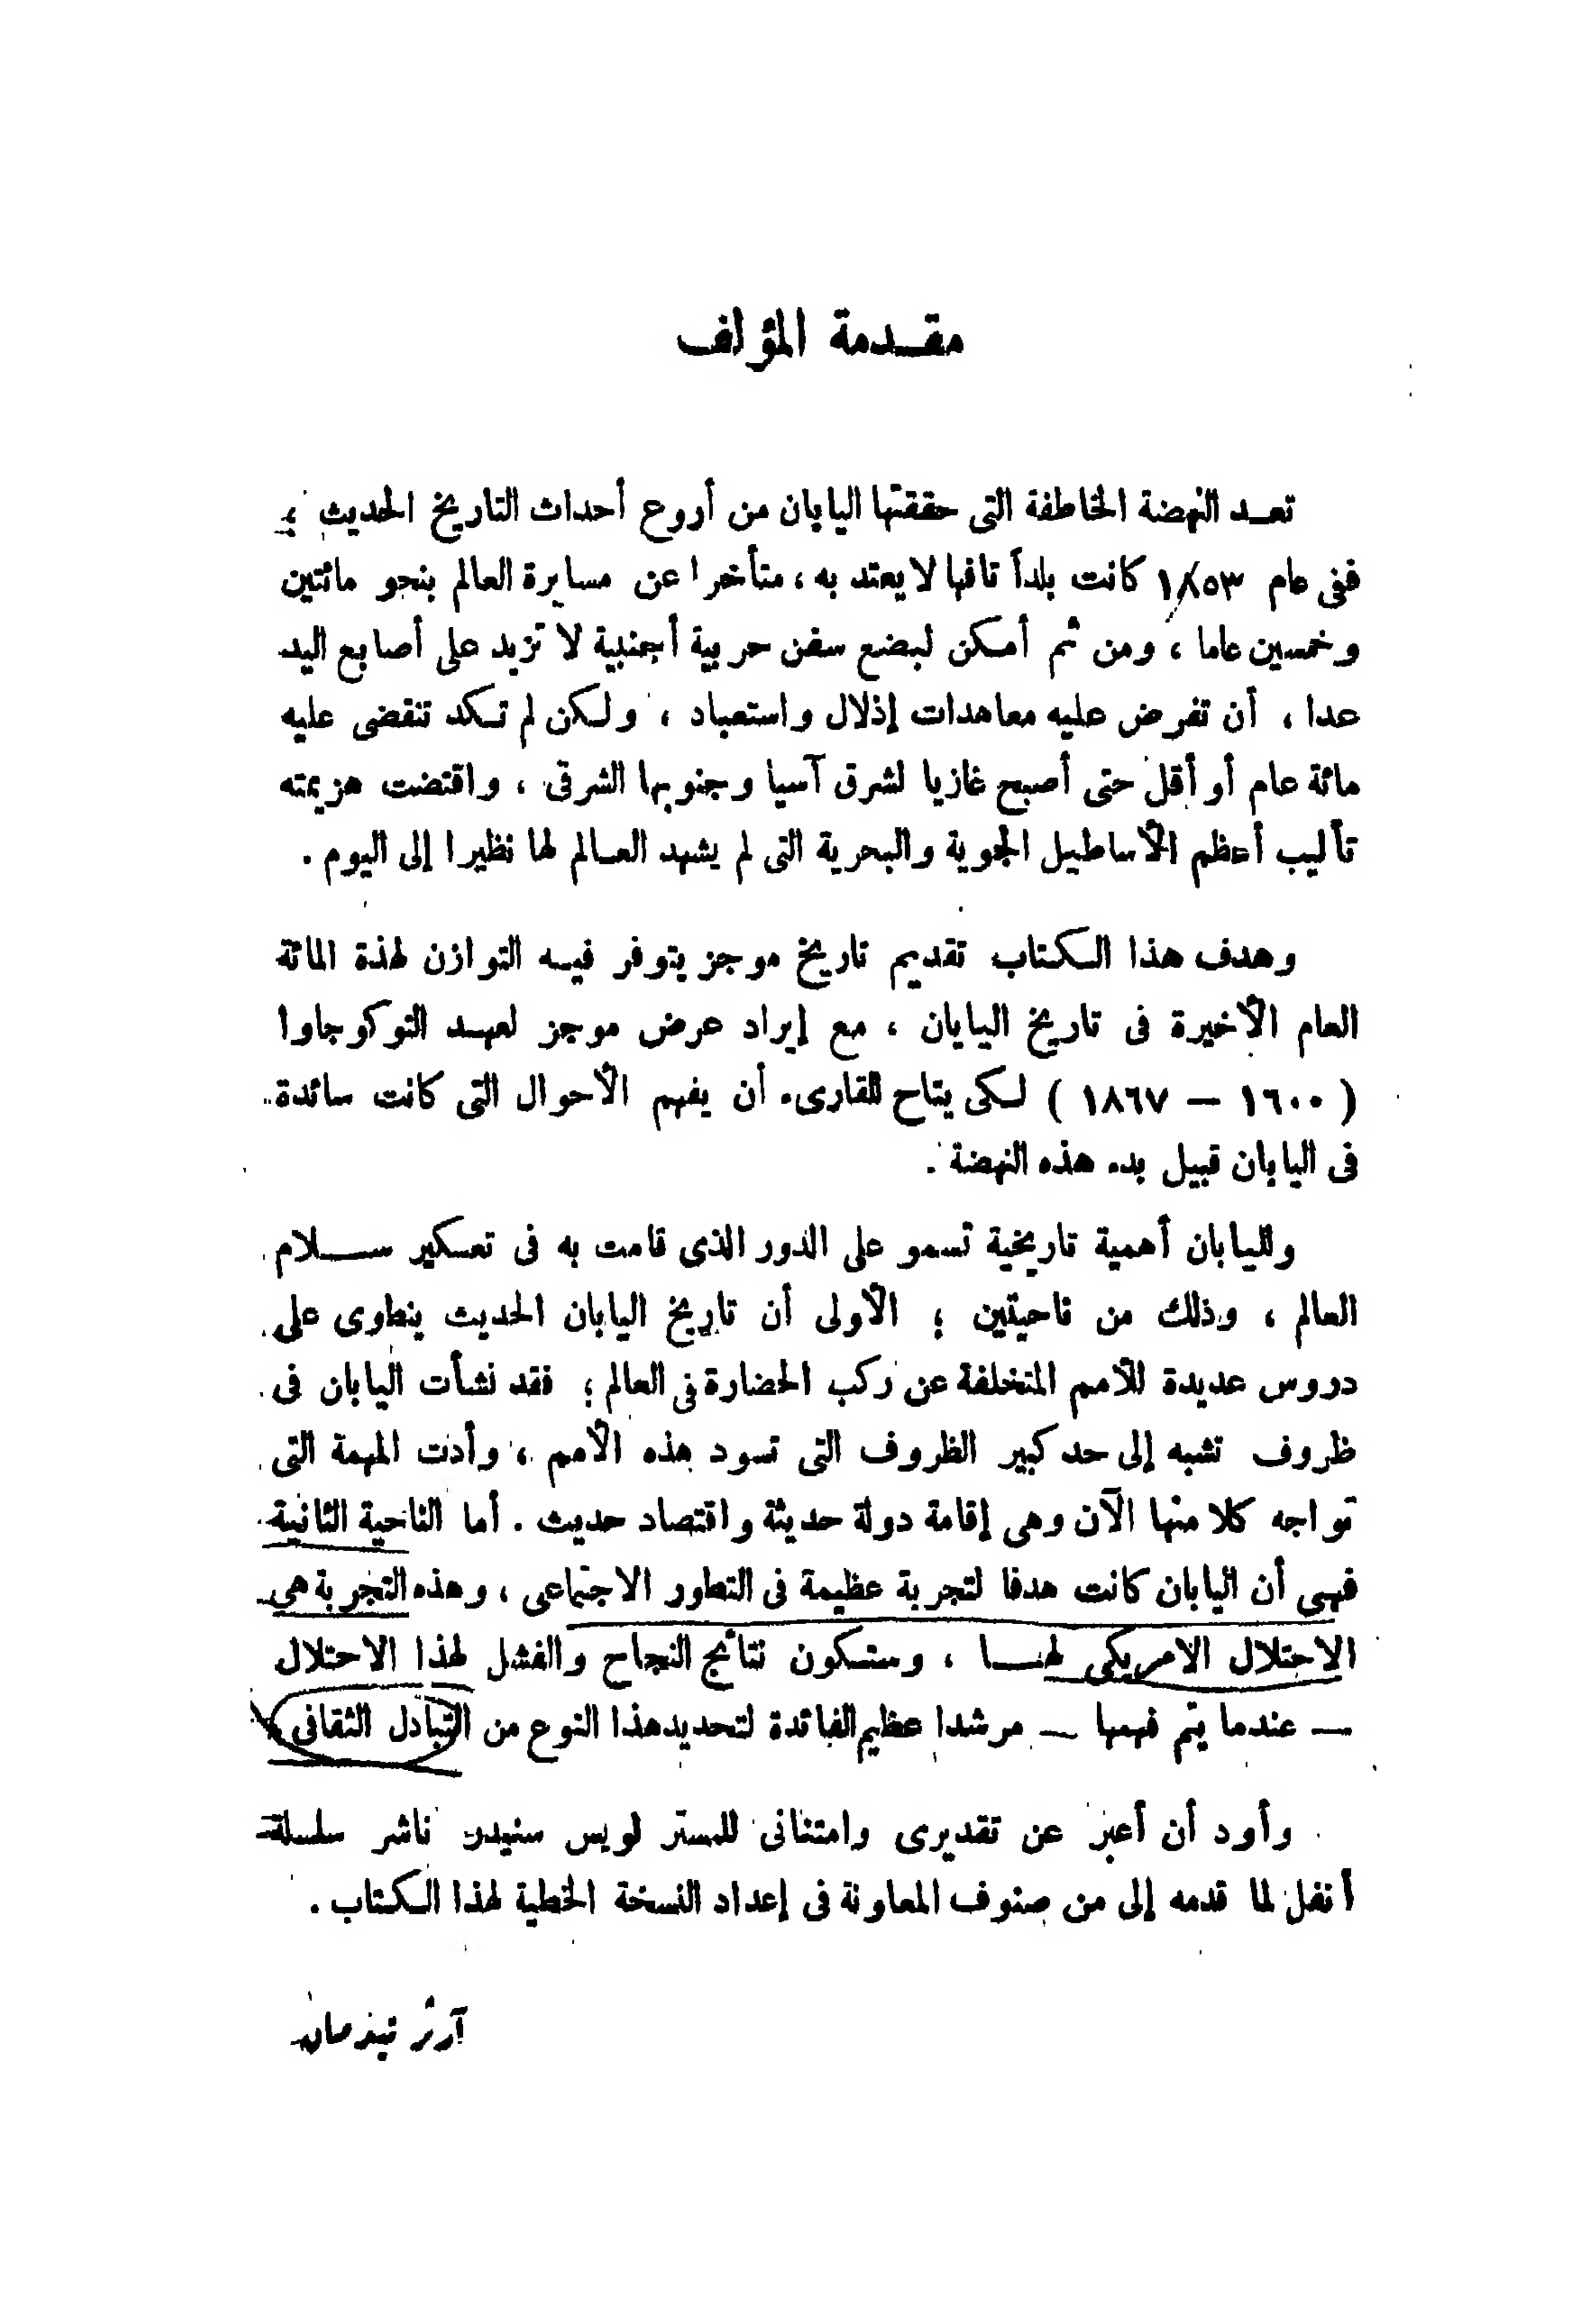 مقدمة المؤلف
تعد النهضة الخاطفة التى حققتها اليابان من أروع أحداث التاريخ الحديث ؛
ففى عام ١٨٥٣ كانت بلداً تافها لا يعتد به ، متأخرا عن مسايرة العالم بنحو مائتين
وخمسين عاما ، ومن ثم أمكن لبضع سفن حربية أجنبية لا تزيد على أصابع اليد
عدا ، أن تفرض عليه معاهدات إذلال واستعباد ، ولكن لم تكد تنقضى عليه
مائة عام أو أقل حتى أصبح غازيا لشرق آسيا وجنوبها الشرقى ، واقتضت هزيمته
تأليب أعظم الأساطيل الجوية والبحرية التى لم يشهد العالم لها نظيرا إلى اليوم .
وهدف هذا الكتاب تقديم تاريخ موجز يتوفر فيه التوازن لهذة المائة
العام الأخيرة فى تاريخ اليابان ، مع إيراد عرض موجز لعهد التوكوجاوا
( ١٦٠٠ – ١٨٦٧ ) لكى يتاح للقارىء أن يفهم الأحوال التى كانت سائدة
فى اليابان قبيل بدء هذه النهضة .
ولليابان أهمية تاريخية تسمو على الدور الذى قامت به فى تعكير سلام
العالم ، وذلك من ناحيتين ؛ الأولى أن تاريخ اليابان الحديث ينطوى على
دروس عديدة للأمم المتخلفة عن ركب الحضارة فى العالم ؛ فقد نشأت اليابان فى
ظروف تشبه إلى حد كبير الظروف التى تسود هذه الأمم ، وأدت المهمة التى
تواجه كلا منها الآن وهى إقامة دولة حديثة واقتصاد حديث . أما الناحية الثانية
فهى أن اليابان كانت هدفا لتجربة عظيمة فى التطور الاجتماعى ، وهذه التجربة هى
الاحتلال الامريكى لها ، وستكون نتائج النجاح والفشل لهذا الاحتلال
— عندما يتم فهمها — مرشدا عظيم الفائدة لتحديد هذا النوع من التبادل الثقافى
وأود أن أعبر عن تقديرى وامتنانى للمستر لويس سنيدر ناشر سلسلة
أنفل لما قدمه إلى من صنوف المعاونة فى إعداد النسخة الخطية لهذا الكتاب .
آرثر تيدمان